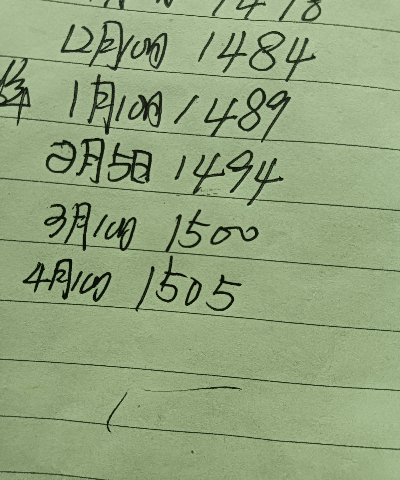 1478
12月10日 1484
1月10日 1489
2月5日 1494
3月10日 1500
4月10日 1505